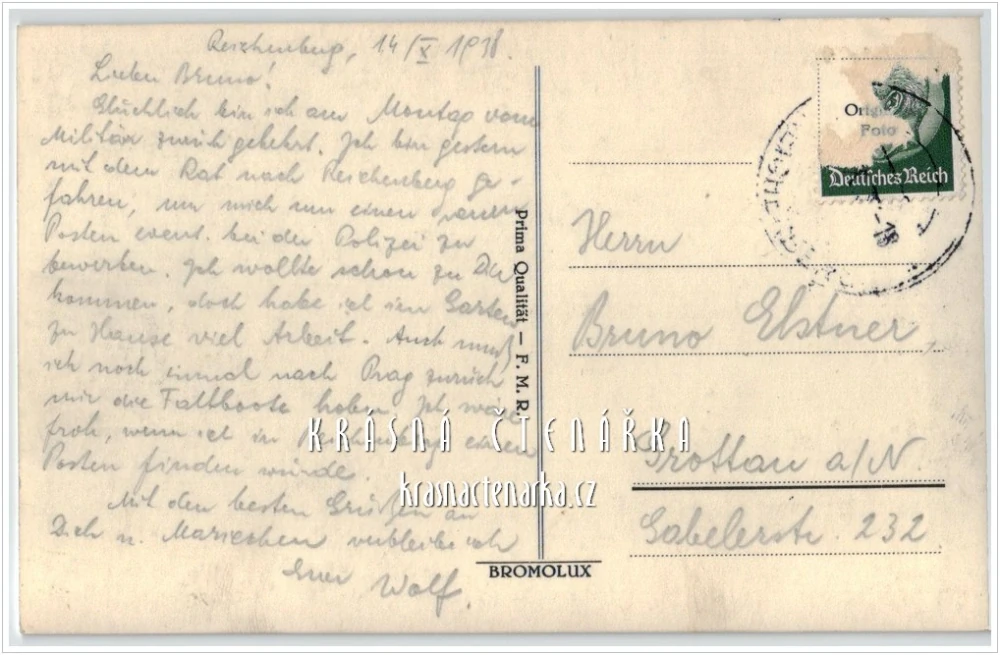 Reichenberg, 14/X 1938.
Lieber Bruno!
Glücklich bin ich am Montag vom
Militär zurück gekehrt. Ich bin gestern
mit dem Rat nach Reichenberg ge-
fahren, um mich um einen neuen
Posten event. bei der Polizei zu
bewerben. Ich wollte schon zu Dir
kommen, doch habe ich im Garten
zu Hause viel Arbeit. Auch muß
ich noch einmal nach Prag zurück
mir die Faltboote holen. Ich wäre
froh, wenn ich in Reichenberg einen
Posten finden würde.
Mit den besten Grüßen an
Dich u. Mariechen verbleibe ich
Euer Wolf.
Prima Qualität — F. M. R.
BROMOLUX
Original
Foto
Deutsches Reich
Herrn
Bruno Elstner,
Grottau a/N.
Gabelerstr. 232
KRÁSNÁ ČTENÁŘKA
krasnactenarka.cz